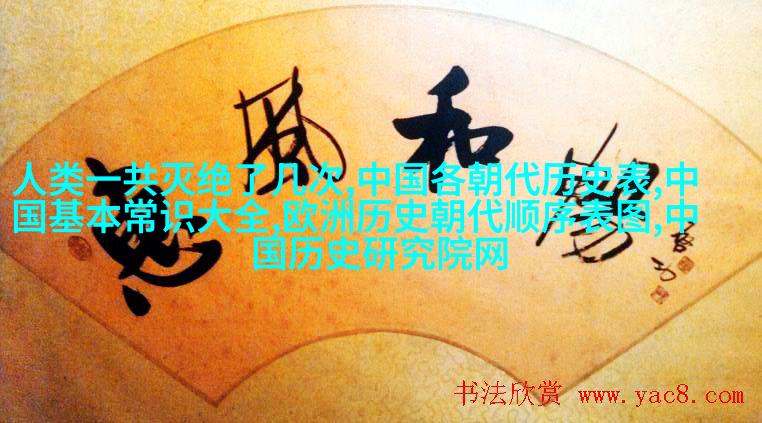 惠風和暢
启功
人类一共灭绝了几次,中国各朝代历史表,中
国基本常识大全,欧洲历史朝代顺序表图,中
国历史研究院网
书法欣赏 www.yac8.com